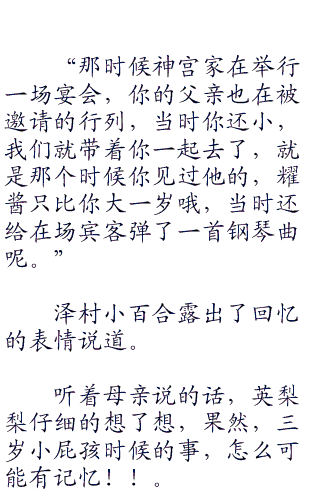 “那时候神宫家在举行
一场宴会，你的父亲也在被
邀请的行列，当时你还小，
我们就带着你一起去了，就
是那个时候你见过他的，耀
酱只比你大一岁哦，当时还
给在场宾客弹了一首钢琴曲
呢。”
泽村小百合露出了回忆
的表情说道。
听着母亲说的话，英梨
梨仔细的想了想，果然，三
岁小屁孩时候的事，怎么可
能有记忆！！。